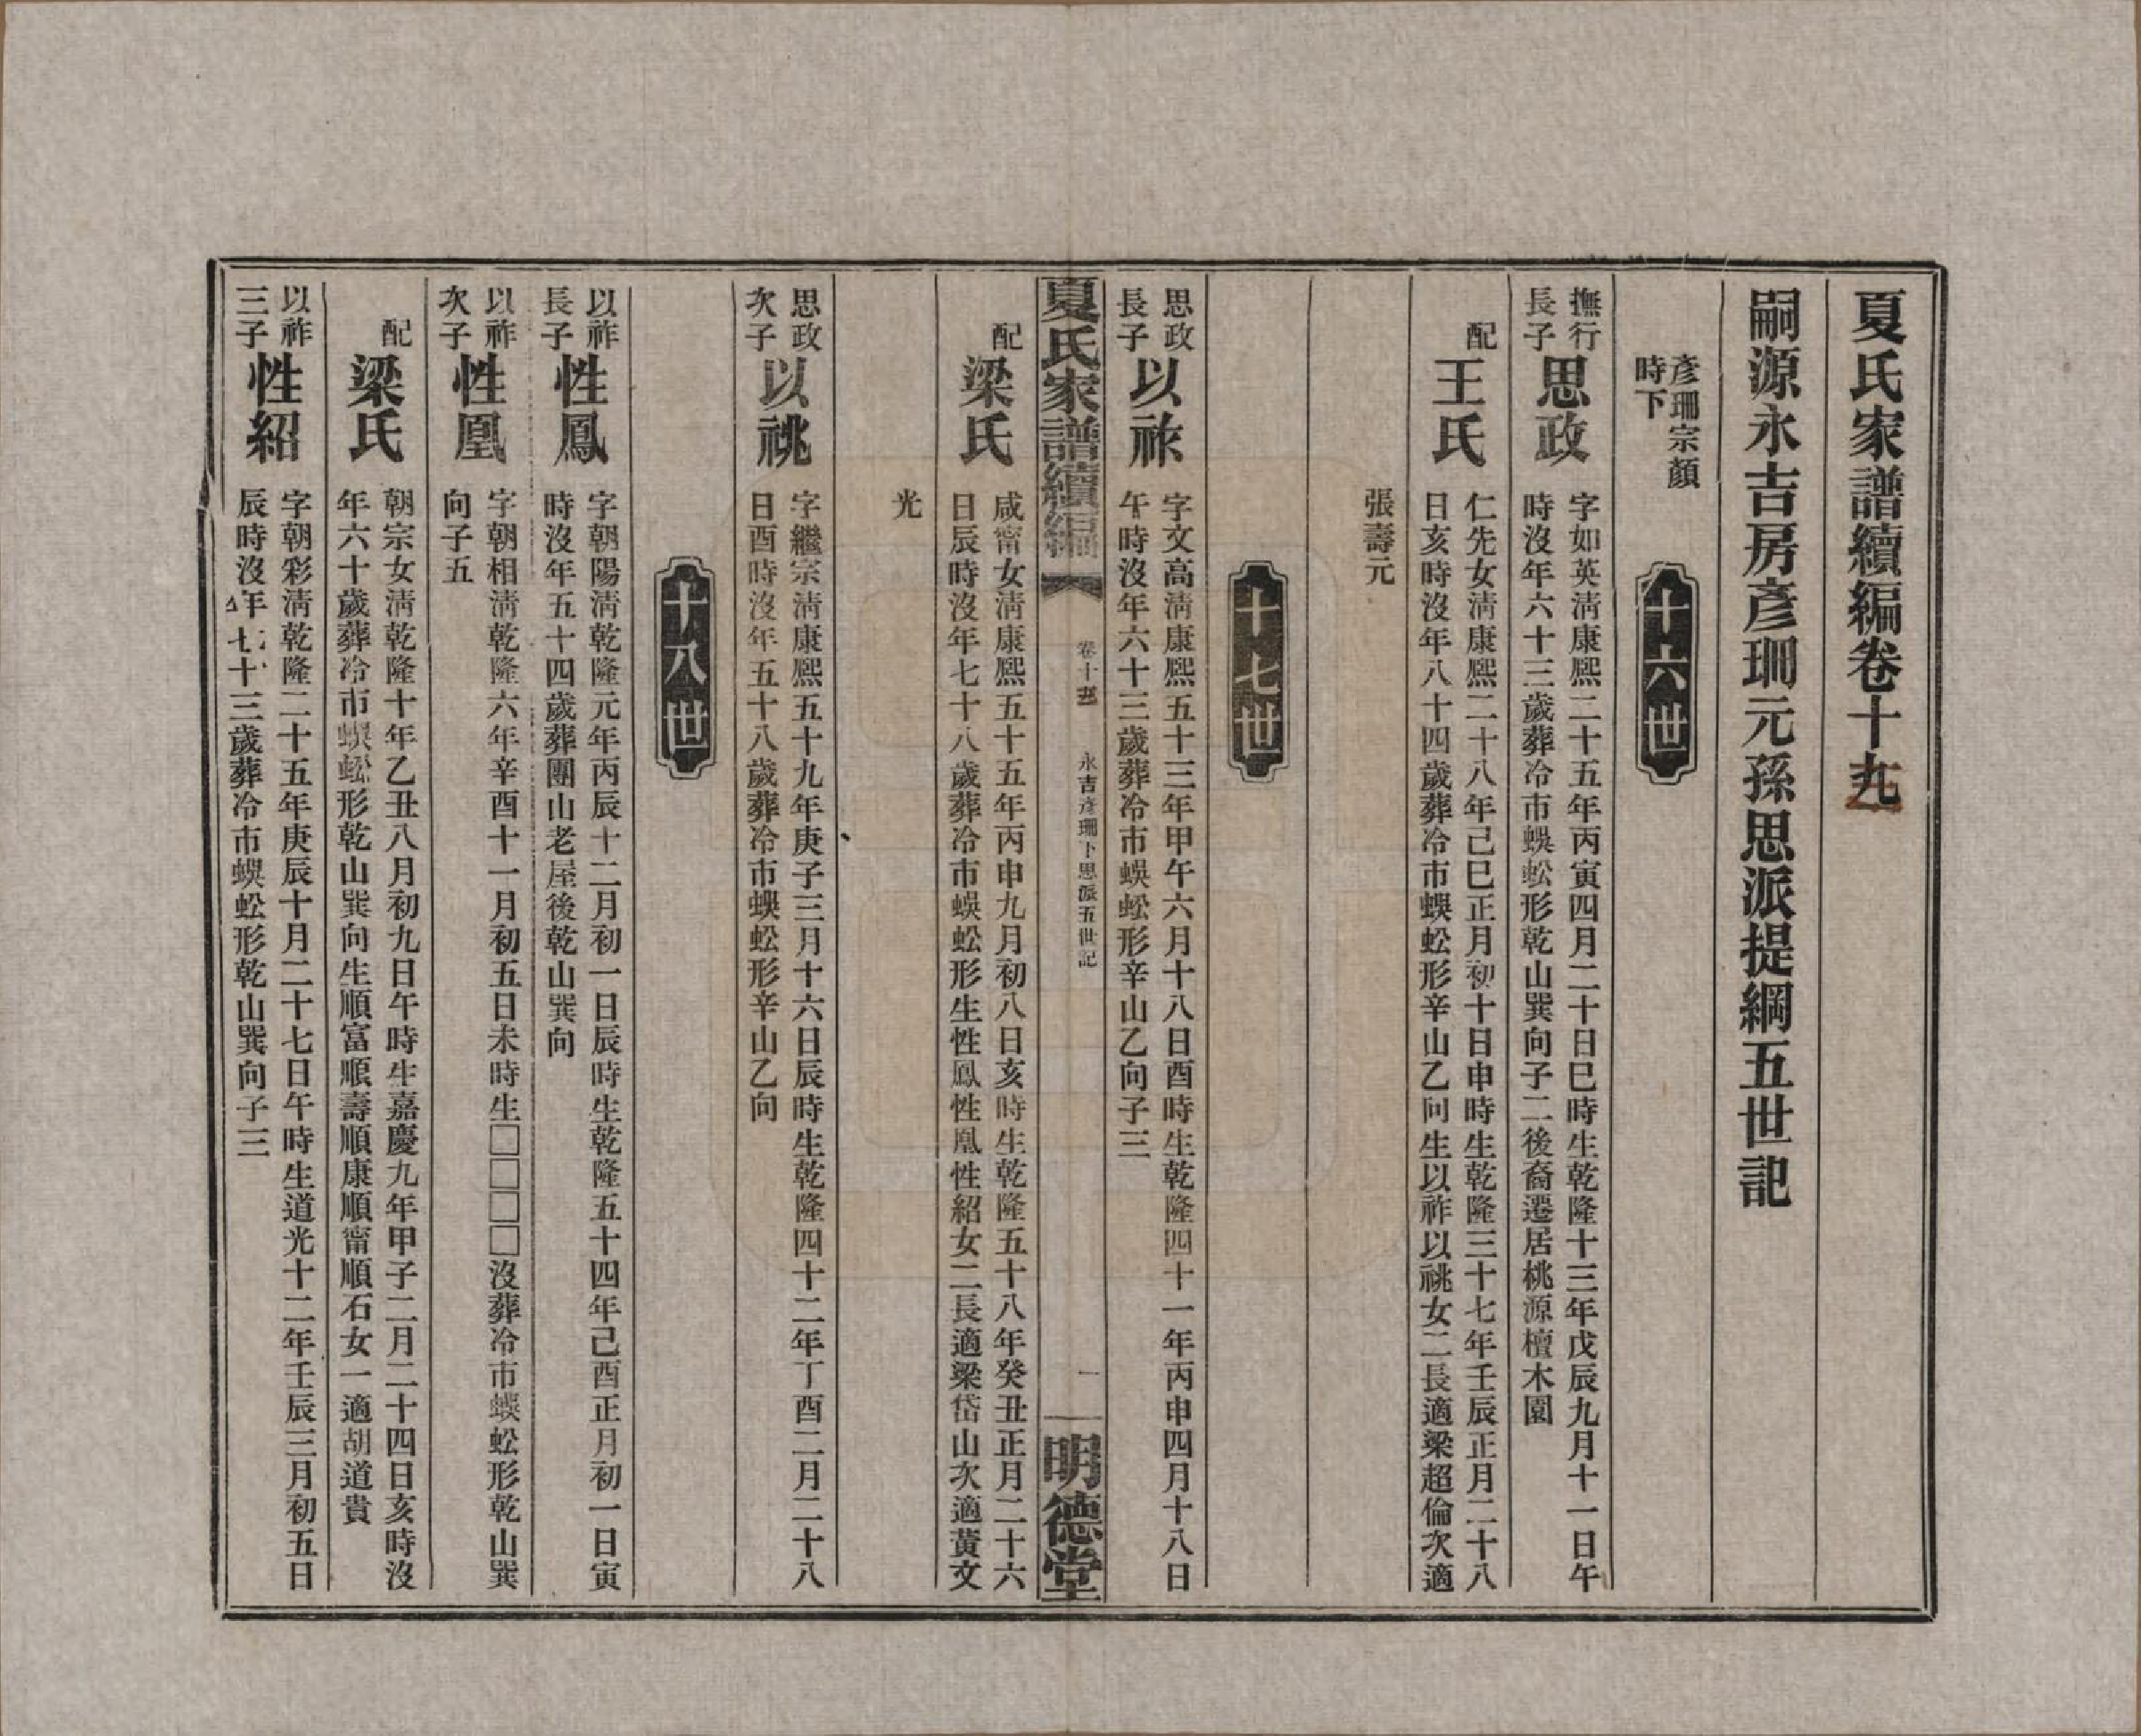 夏氏家譜續編卷十九
嗣源永吉房彥珊元孫思派提綱五世記
十六世
彥珊宗顏
時下
撫行
長子
思政
字如英淸康熙二十五年丙寅四月二十日巳時生乾隆十三年戊辰九月十一日午
時沒年六十三歲葬冷市蜈蚣形乾山巽向子二後裔遷居桃源檀木園
配
王氏
仁先女淸康熙二十八年己巳正月初十日申時生乾隆三十七年壬辰正月二十八
日亥時沒年八十四歲葬冷市蜈蚣形辛山乙向生以祚以祧女二長適梁超倫次適
張壽元
十七世
思政
長子
以祚
字文高淸康熙五十三年甲午六月十八日酉時生乾隆四十一年丙申四月十八日
午時沒年六十三歲葬冷市蜈蚣形辛山乙向子三
夏氏家譜續編
卷十
永吉彥珊下思派五世記
一
明德堂
配
梁氏
咸甯女淸康熙五十五年丙申九月初八日亥時生乾隆五十八年癸丑正月二十六
日辰時沒年七十八歲葬冷市蜈蚣形生性鳳性凰性紹女二長適梁岱山次適黃文
光
思政
次子
以祧
字繼宗淸康熙五十九年庚子三月十六日辰時生乾隆四十二年丁酉二月二十八
日酉時沒年五十八歲葬冷市蜈蚣形辛山乙向
十八世
以祚
長子
性鳳
字朝陽淸乾隆元年丙辰十二月初一日辰時生乾隆五十四年己酉正月初一日寅
時沒年五十四歲葬團山老屋後乾山巽向
以祚
次子
性凰
字朝相淸乾隆六年辛酉十一月初五日未時生□□□□沒葬冷市蜈蚣形乾山巽
向子五
配
梁氏
朝宗女淸乾隆十年乙丑八月初九日午時生嘉慶九年甲子二月二十四日亥時沒
年六十歲葬冷市蜈蚣形乾山巽向生順富順壽順康順甯順石女一適胡道貴
以祚
三子
性紹
字朝彩淸乾隆二十五年庚辰十月二十七日午時生道光十二年壬辰三月初五日
辰時沒年七十三歲葬冷市蜈蚣形乾山巽向子三